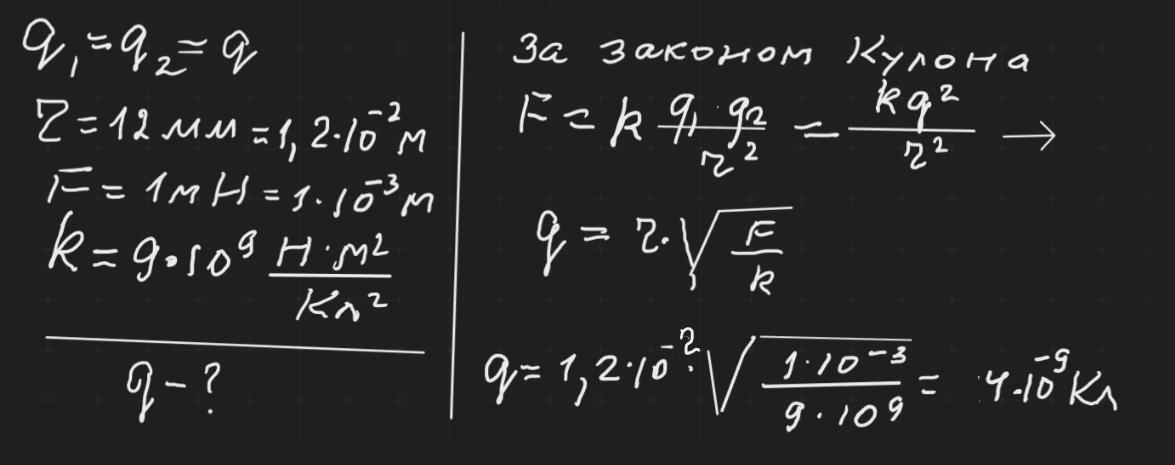 q₁ = q₂ = q
r = 12 мм = 1,2·10⁻² м
F = 1 мН = 1·10⁻³ м
k = 9·10⁹ Н·м²/Кл²
q - ?
За законом Кулона
F = k q₁·q₂/r² = kq²/r² →
q = r·√(F/k)
q = 1,2·10⁻²·√(1·10⁻³/9·10⁹) = 4·10⁻⁹ Кл